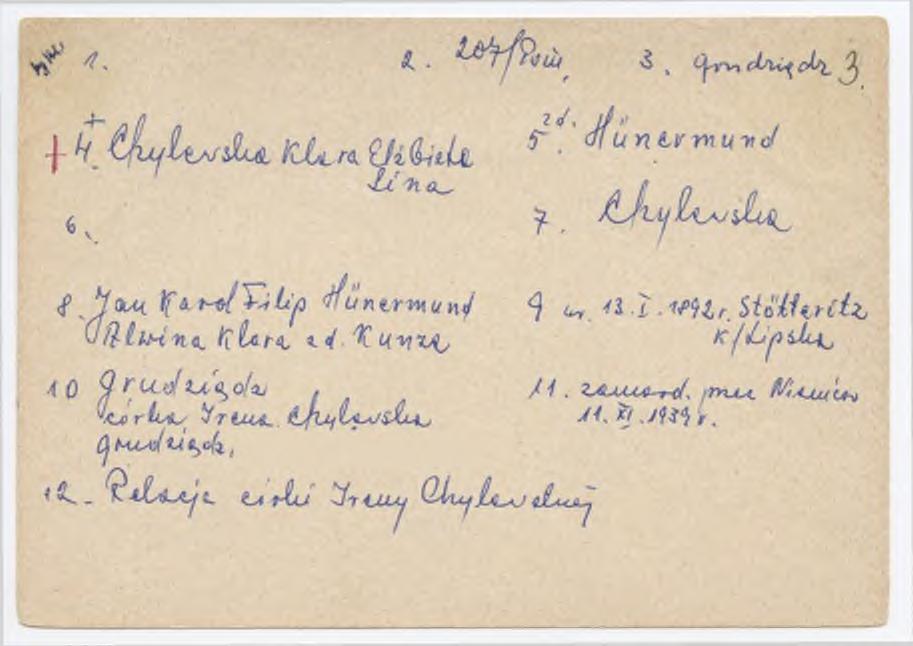 1. 2. 207/Pom. 3. Grudziądz 3.
+ 4. Chylewska Klara Elżbieta 5. zd. Hünermund
Lina
6. 7. Chylewska
8. Jan Karol Filip Hünermund 9 ur. 13.I.1892r. Stötteritz
Alwina Klara zd. Kunze k/Lipska
10 Grudziądz 11. zamord. przez Niemców
córka Irena Chylewska 11.XI.1939r.
Grudziądz,
12. Relacja córki Ireny Chylewskiej